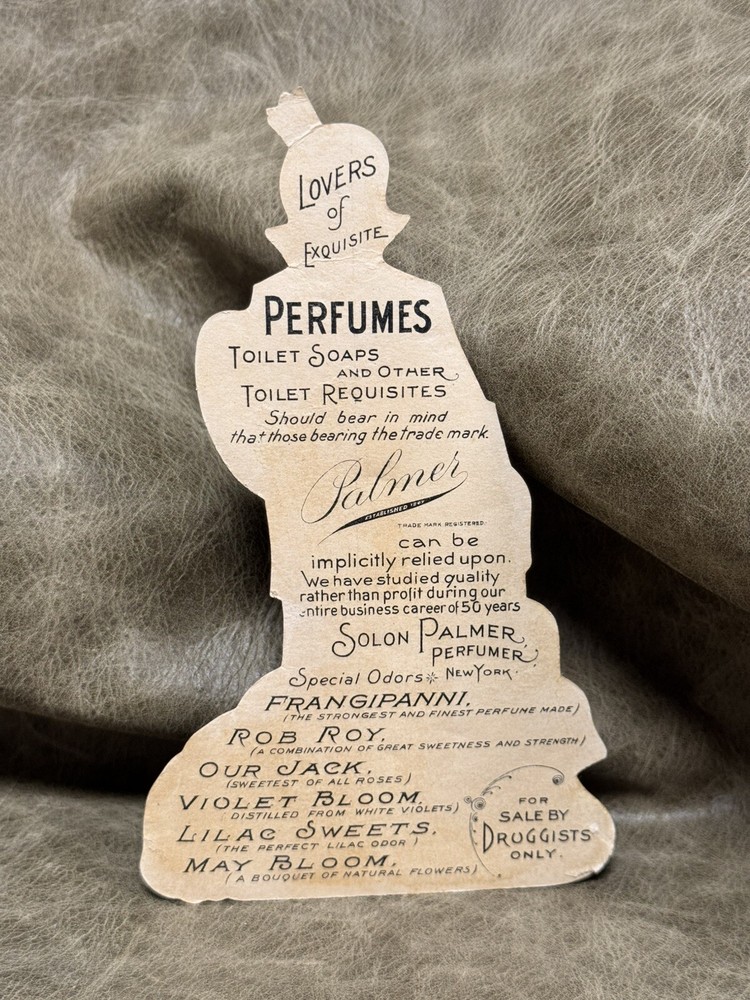 LOVERS
of
EXQUISITE
PERFUMES
TOILET SOAPS
AND OTHER
TOILET REQUISITES
Should bear in mind
that those bearing the trade mark.
Palmer
ESTABLISHED 1847
TRADE MARK REGISTERED.
can be
implicitly relied upon.
We have studied quality
rather than profit during our
entire business career of 50 years
SOLON PALMER,
PERFUMER,
Special Odors NEW YORK.
FRANGIPANNI,
(THE STRONGEST AND FINEST PERFUME MADE)
ROB ROY,
(A COMBINATION OF GREAT SWEETNESS AND STRENGTH)
OUR JACK,
(SWEETEST OF ALL ROSES)
VIOLET BLOOM,
DISTILLED FROM WHITE VIOLETS)
LILAC SWEETS,
(THE PERFECT LILAC ODOR)
MAY BLOOM,
(A BOUQUET OF NATURAL FLOWERS)
FOR
SALE BY
DRUGGISTS
ONLY.